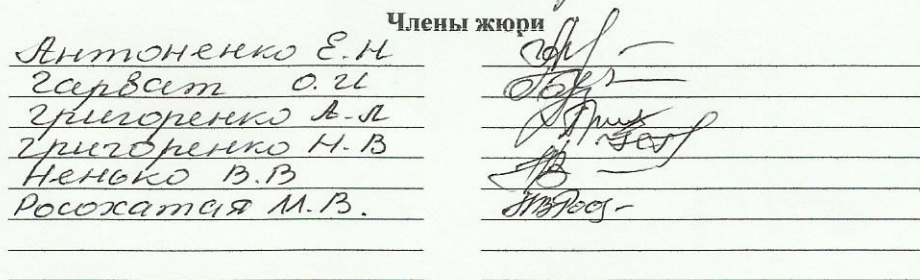 Члены жюри
Антоненко Е.Н
Гарват О.И
Григоренко А.Л
Григоренко Н.В
Ненько В.В
Росохатая М.В.